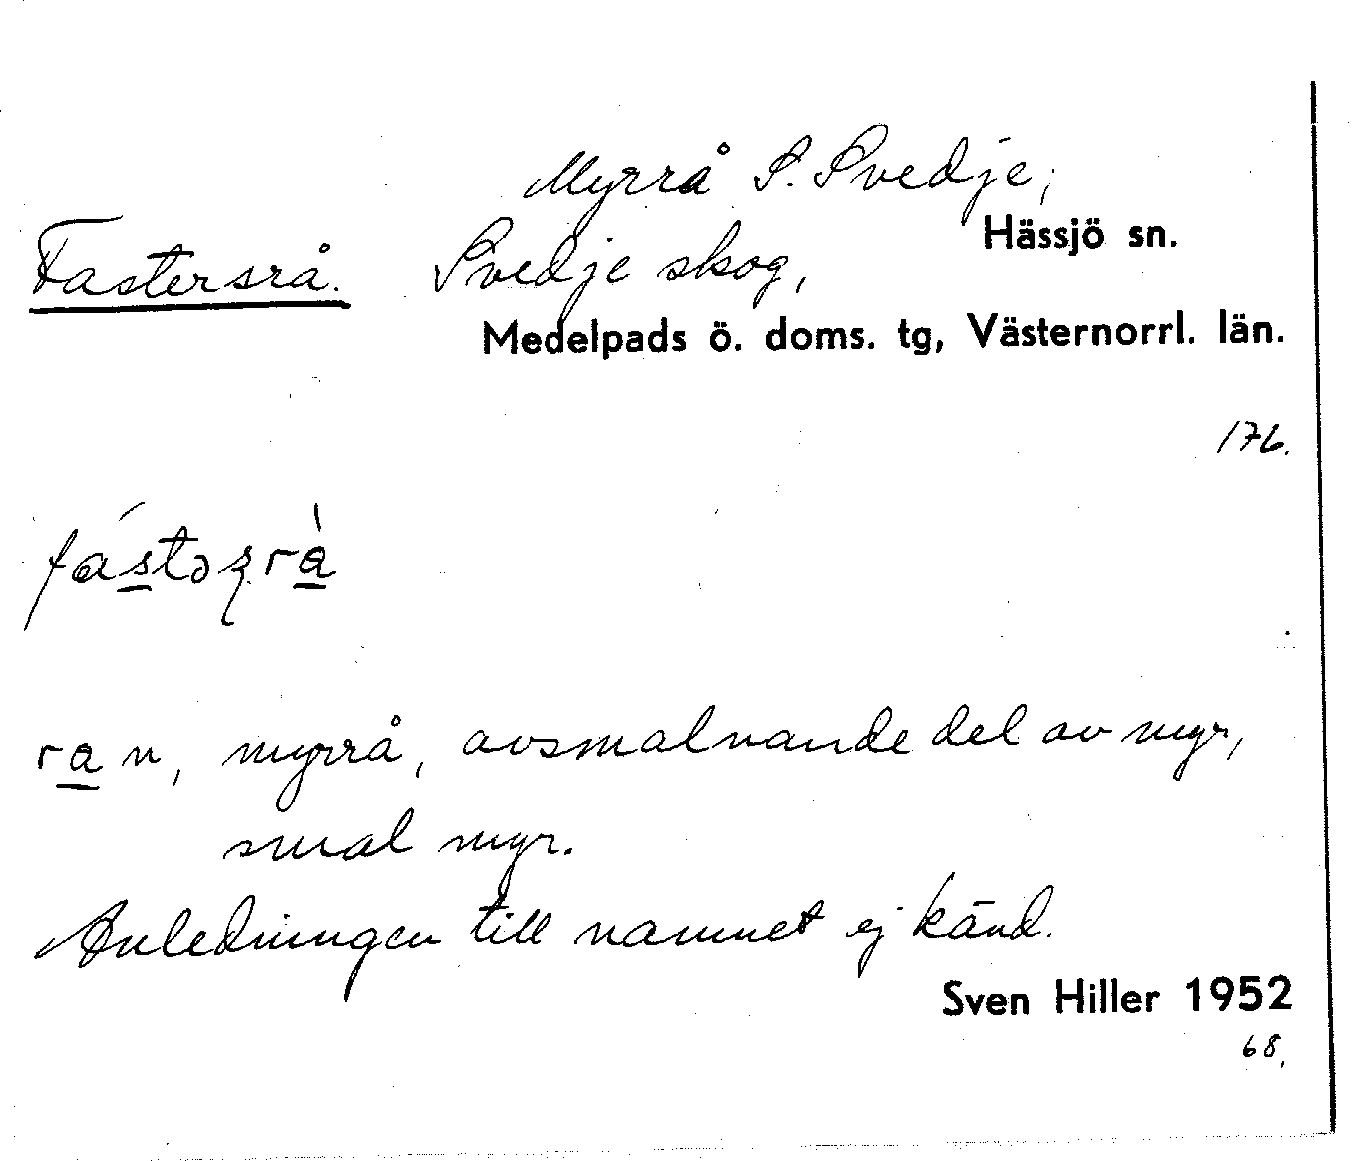 Myrrå S. Svedje,
Fastersrå. Svedje skog, Hässjö sn.
Medelpads ö. doms. tg, Västernorrl. län.
176.
ra n, myrrå, avsmalnande del av myr,
smal myr.
Anledningen till namnet ej känd.
Sven Hiller 1952
68.